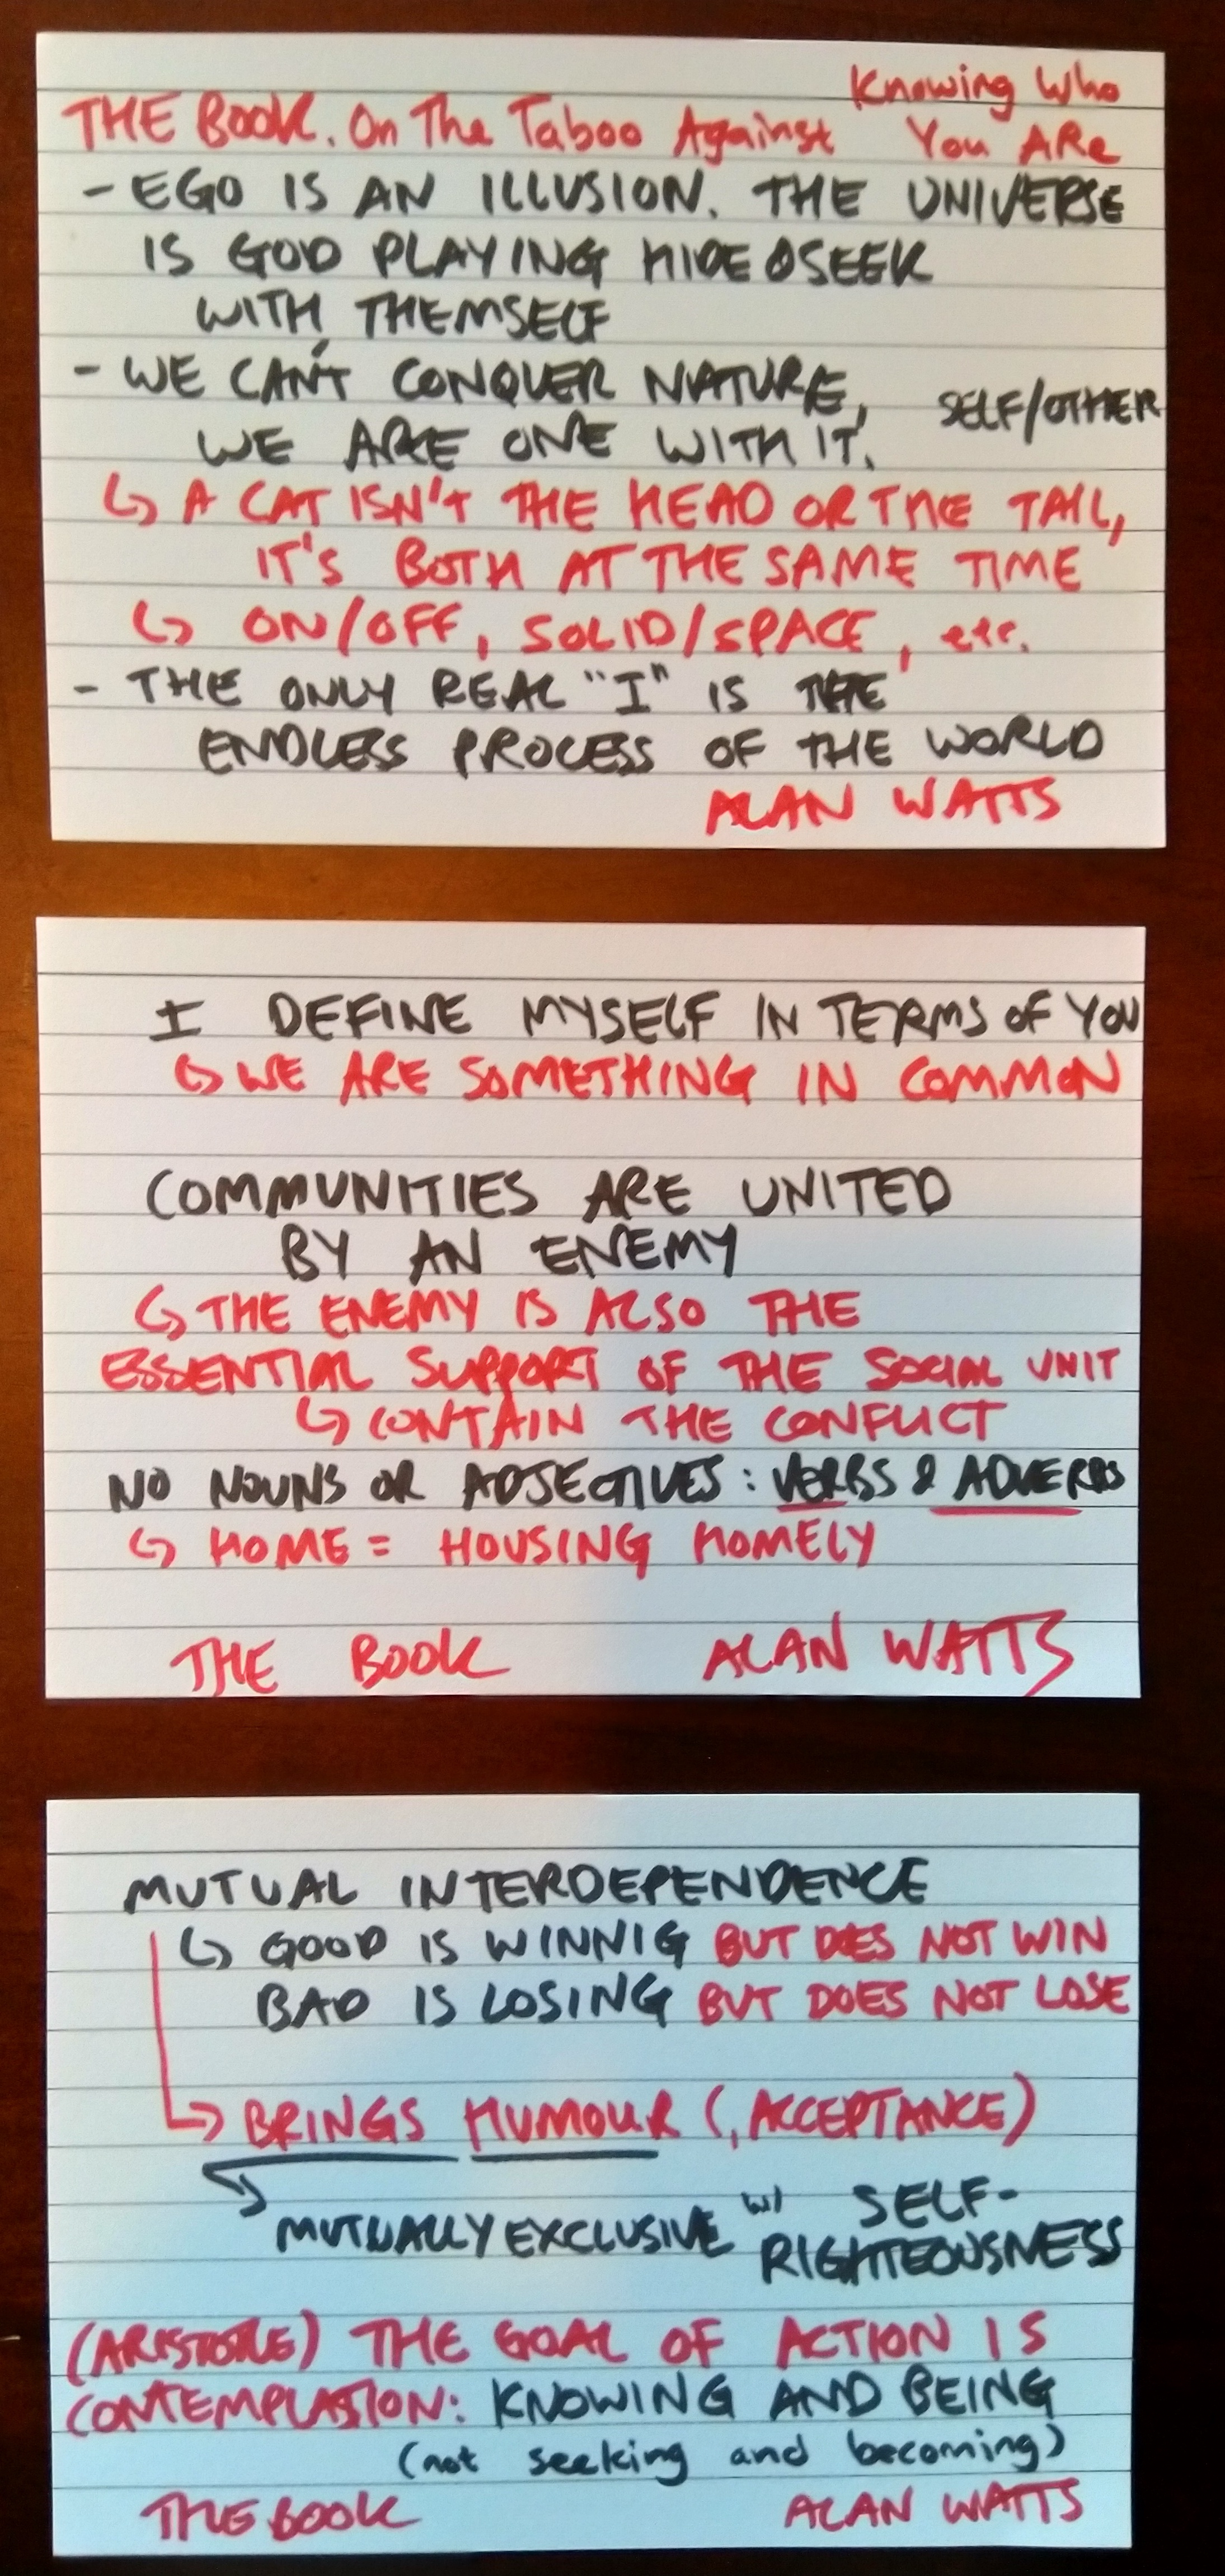 Knowing Who
THE BOOK. On The Taboo Against You ARe
- EGO IS AN ILLUSION. THE UNIVERSE
IS GOD PLAYING HIDE & SEEK
WITH THEMSELF
- WE CAN'T CONQUER NATURE,
SELF/OTHER
WE ARE ONE WITH IT.
↳ A CAT ISN'T THE HEAD OR THE TAIL,
IT'S BOTH AT THE SAME TIME
↳ ON/OFF, SOLID/SPACE, etc.
- THE ONLY REAL "I" IS THE
ENDLESS PROCESS OF THE WORLD
ALAN WATTS
I DEFINE MYSELF IN TERMS OF YOU
↳ WE ARE SOMETHING IN COMMON
COMMUNITIES ARE UNITED
BY AN ENEMY
↳ THE ENEMY IS ALSO THE
ESSENTIAL SUPPORT OF THE SOCIAL UNIT
↳ CONTAIN THE CONFLICT
NO NOUNS OR ADJECTIVES: VERBS & ADVERBS
↳ HOME = HOUSING HOMELY
THE BOOK ALAN WATTS
MUTUAL INTERDEPENDENCE
↳ GOOD IS WINNIG BUT DOES NOT WIN
BAD IS LOSING BUT DOES NOT LOSE
↳ BRINGS HUMOUR (, ACCEPTANCE)
MUTUALLY EXCLUSIVE w/ SELF-
RIGHTEOUSNESS
(ARISTOTLE) THE GOAL OF ACTION IS
CONTEMPLATION: KNOWING AND BEING
(not seeking and becoming)
THE BOOK ALAN WATTS